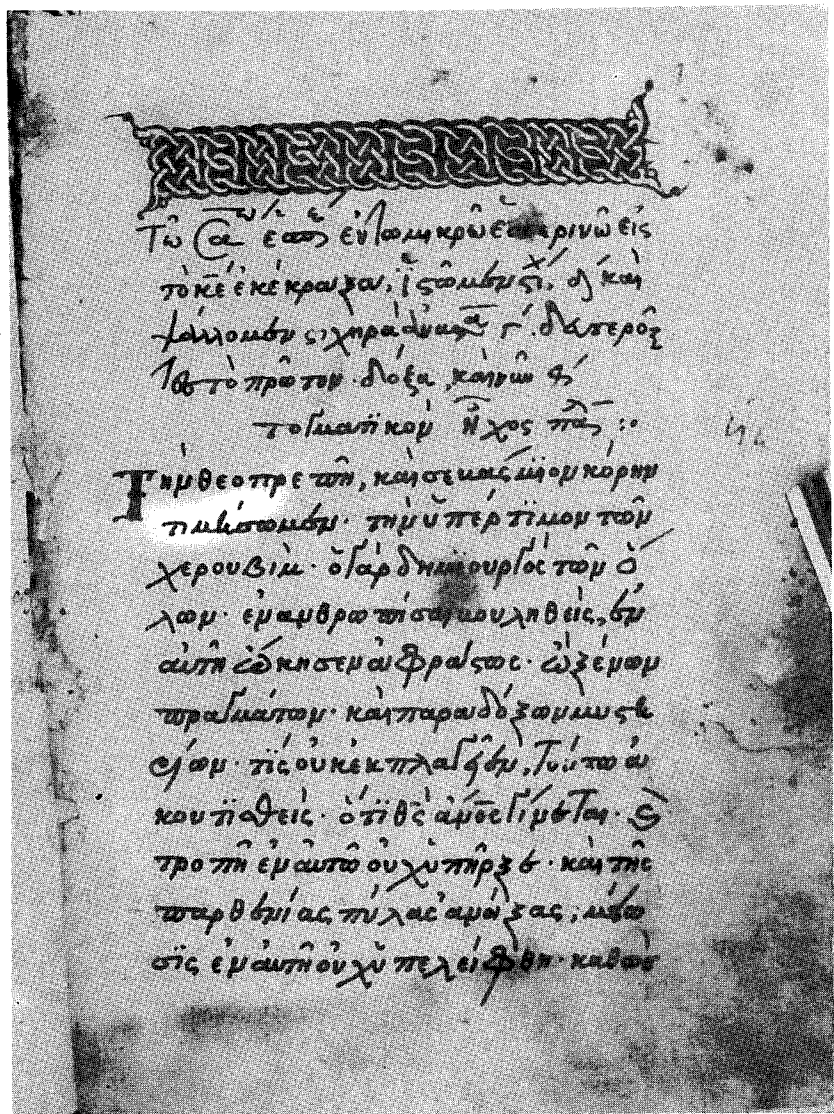 Τῶ Σα ἑσπ ἐν τῶ μικρῶ ἑσπερινῶ εἰς
τὸ κε ἐκέκραξα, ἱστῶμεν στίχ. δ καὶ
ψάλλομεν στιχηρὰ ἀναστα γ. δευτεροῦντες
τὸ πρῶτον. δόξα, καὶ νῦν
τογματικὸν ἦχος πλα :·
Τὴν θεοπρεπῆ, καὶ σεβάσμιον κόρην
τιμήσωμεν. τὴν ὑπέρτιμον τῶν
χερουβὶμ. ὁ γὰρ δημϊουργὸς τῶν ὅ
λων. ἐνανθρωπῆσαι βουληθεὶς, ἐν
αὐτῆ ὤκησεν ἀφράστως. ὢ ξένων
πραγμάτων. καὶ παραδόξων μυστη
ρίων. τίς οὐκ ἐκπλαγῆ ἐν, τούτω ἀ
κουτϊσθεὶς. ὅτϊ θς ἄνος γίνεται. καὶ
τροπὴ ἐν αὐτῶ οὐχ ὑπῆρξε. καὶ τῆς
παρθενίας πύλας ἀνοίξας, μείω
σϊς ἐν αὐτῆ οὐχ ὑπελείφθη. καθὼς